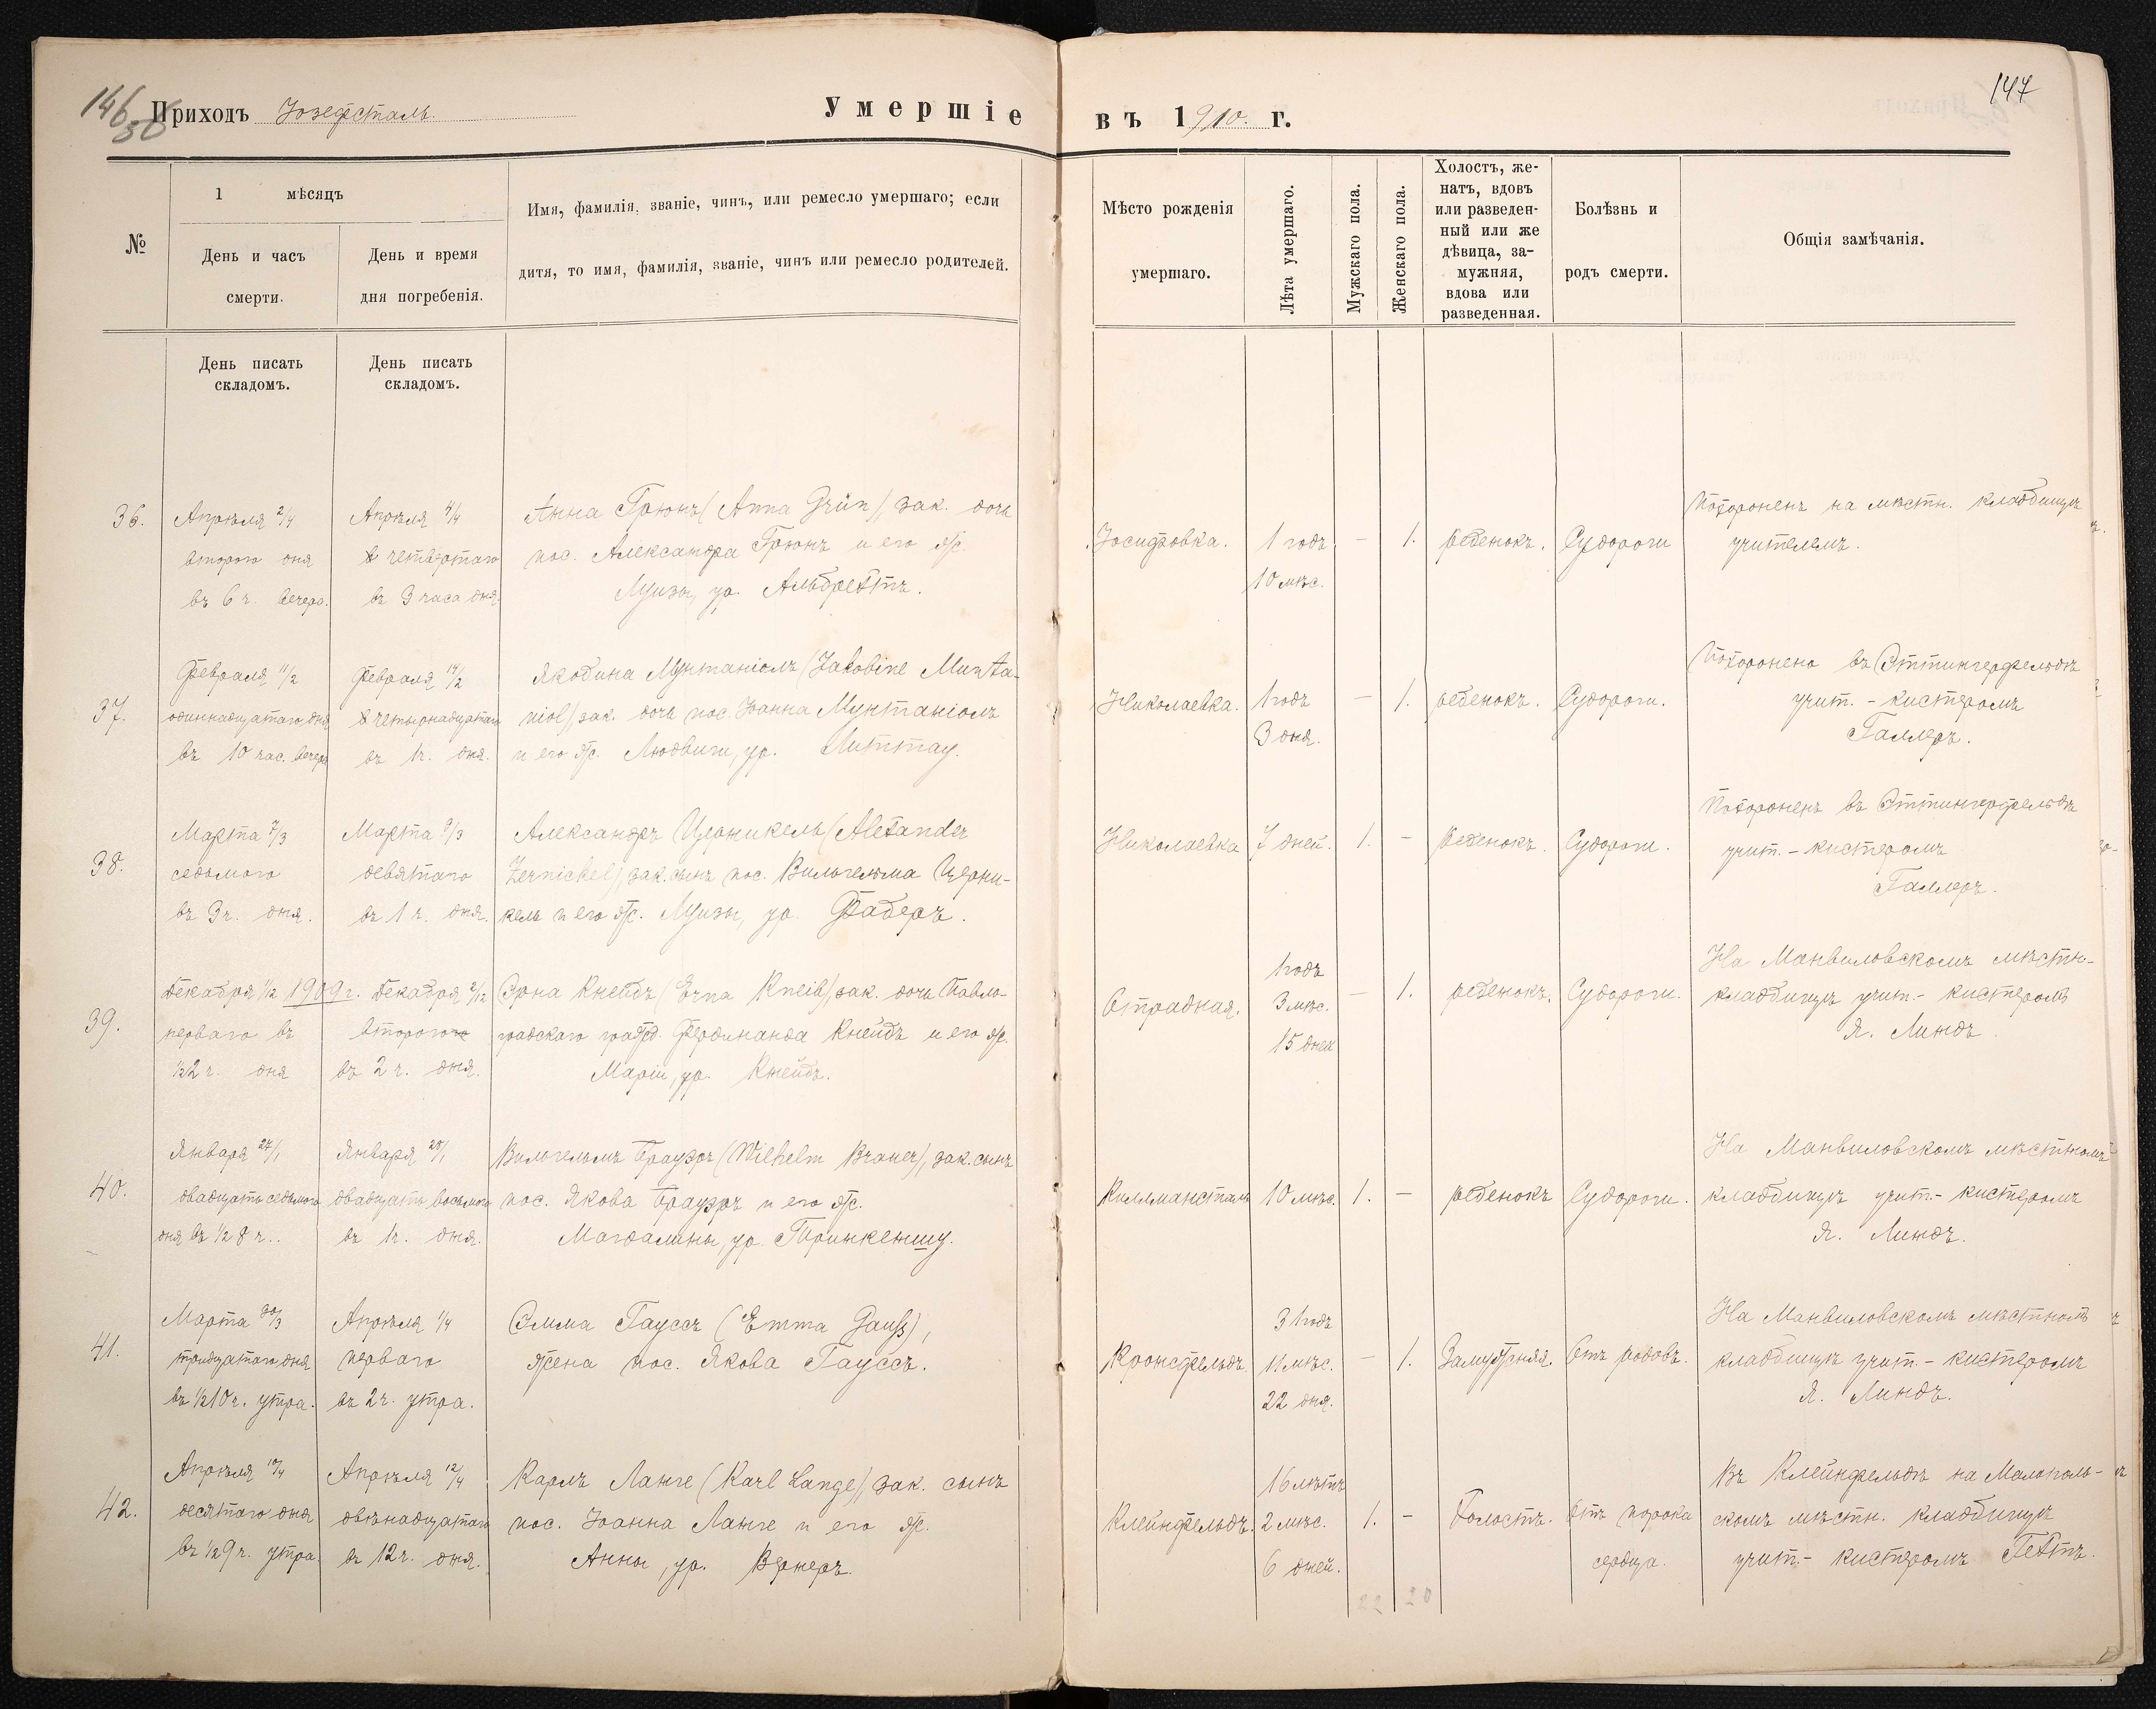 146
Приходъ Іозефсталь.
Умершіе
въ 1910. г.
147
№
1 мѣсяцъ
День и часъ
смерти.
День и время
дня погребенія.
Имя, фамилія, званіе, чинъ, или ремесло умершаго; если
дитя, то имя, фамилія, званіе, чинъ или ремесло родителей.
Мѣсто рожденія
умершаго.
Лѣта умершаго.
Мужскаго пола.
Женскаго пола.
Холостъ, же-
натъ, вдовъ
или разведен-
ный или же
дѣвица, за-
мужняя,
вдова или
разведенная.
Болѣзнь и
родъ смерти.
Общія замѣчанія.
День писать
складомъ.
День писать
складомъ.
36.
Апрѣля 2/4
второго дня
въ 6 ч. вечера.
Апрѣля 4/4
четвертаго
въ 3 часа дня.
Анна Грюнъ (Anna Grün), зак. дочь
пос. Александра Грюнъ и его ж.
Луизы, ур. Альбрехтъ.
Іосифовка.
1 годъ
10 мѣс.
—
1.
ребенокъ.
Судороги
Похороненъ на мѣстн. кладбищѣ
учителемъ.
37.
Февраля 11/2
одиннадцатаго дня
въ 10 час. вечера
Февраля 14/2
четырнадцатаго
въ 1 ч. дня.
Якобина Мунтаніолъ (Jakobine Munta-
niol) зак. дочь пос. Іоанна Мунтаніолъ
и его ж. Людвиги, ур. Литтау.
Николаевка.
1 годъ
3 дня.
—
1.
ребенокъ.
Судороги.
Похоронена въ Эттингерфельдѣ
учит. - кистеромъ
Галлеръ.
38.
Марта 7/3
седьмого
въ 3 ч. дня.
Марта 9/3
девятаго
въ 1 ч. дня.
Александръ Церникель (Alexander
Zernickel), зак. сынъ пос. Вильгельма Церни-
кель и его ж. Луизы, ур. Фаберъ.
Николаевка
7 дней.
1.
—
ребенокъ.
Судороги.
Похороненъ въ Эттингерфельдѣ
учит. - кистеромъ
Галлеръ.
39.
Декабря 1/12 1909 г.
перваго въ
½2 ч. дня
Декабря 2/12
второго
въ 2 ч. дня.
Эрна Кнейбъ (Erna Kneib) зак. дочь Павло-
градскаго гражд. Фердинанда Кнейбъ и его ж.
Маріи, ур. Кнейбъ.
Отрадная.
1 годъ
3 мѣс.
15 дней
—
1.
ребенокъ.
Судороги.
На Манвиловскомъ мѣстн.
кладбищѣ учит. - кистеромъ
Я. Линдъ
40.
Января 27/1
двадцать седьмого
дня въ ½8 ч..
Января 28/1
двадцать восьмого
въ 1 ч. дня.
Вильгельмъ Брауэръ (Wilhelm Brauer), зак. сынъ
пос. Якова Брауэръ и его ж.
Магдалины, ур.
Киллмансталь
10 мѣс.
1.
—
ребенокъ
Судороги.
На Манвиловскомъ мѣстномъ
кладбищѣ учит. - кистеромъ
Я. Линдъ.
41.
Марта 30/3
тридцатаго дня
въ ½10 ч. утра.
Апрѣля 1/4
перваго
въ 2 ч. утра.
Эмма Гауссъ (Emma Gauß),
жена пос. Якова Гауссъ.
Кронсфельдъ
31 годъ
11 мѣс.
22 дня.
—
1.
Замужняя.
Отъ родовъ.
На Манвиловскомъ мѣстномъ
кладбищѣ учит. - кистеромъ
Я. Линдъ.
42.
Апрѣля 10/4
десятаго дня
въ ½9 ч. утра.
Апрѣля 12/4
двѣнадцатаго
въ 12 ч. дня.
Карлъ Ланге (Karl Lange), зак. сынъ
пос. Іоанна Ланге и его ж.
Анны, ур. Вернеръ.
Клейнфельдъ.
16 лѣтъ
2 мѣс.
6 дней.
1.
—
Холостъ.
Отъ порока
сердца.
Въ Клейнфельдѣ на
скомъ мѣстн. кладбищѣ
учит. - кистеромъ Гехтъ.
22
20